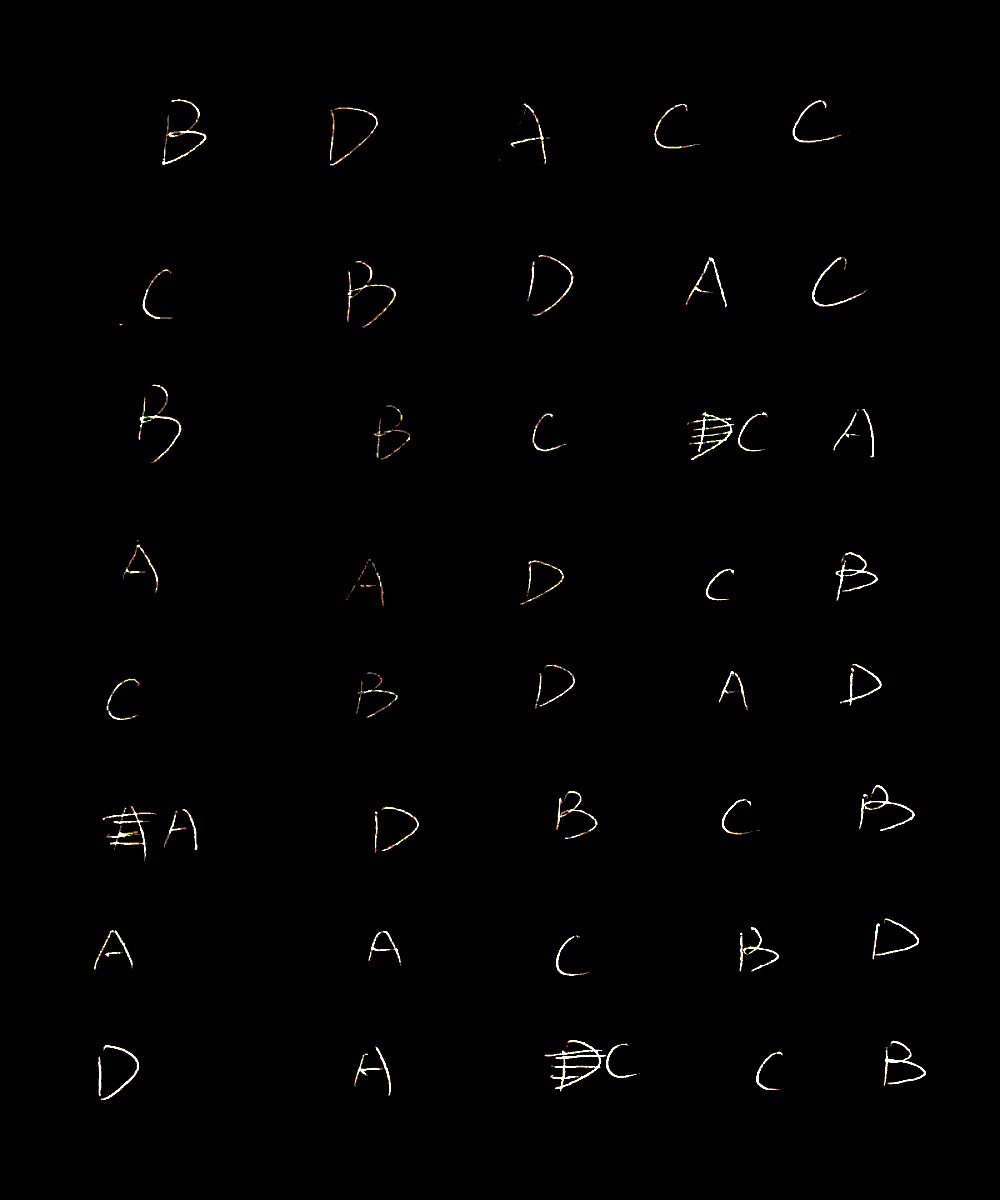 B D A C C
C B D A C
B B C C A
A A D C B
C B D A D
A D B C B
A A C B D
D A C C B